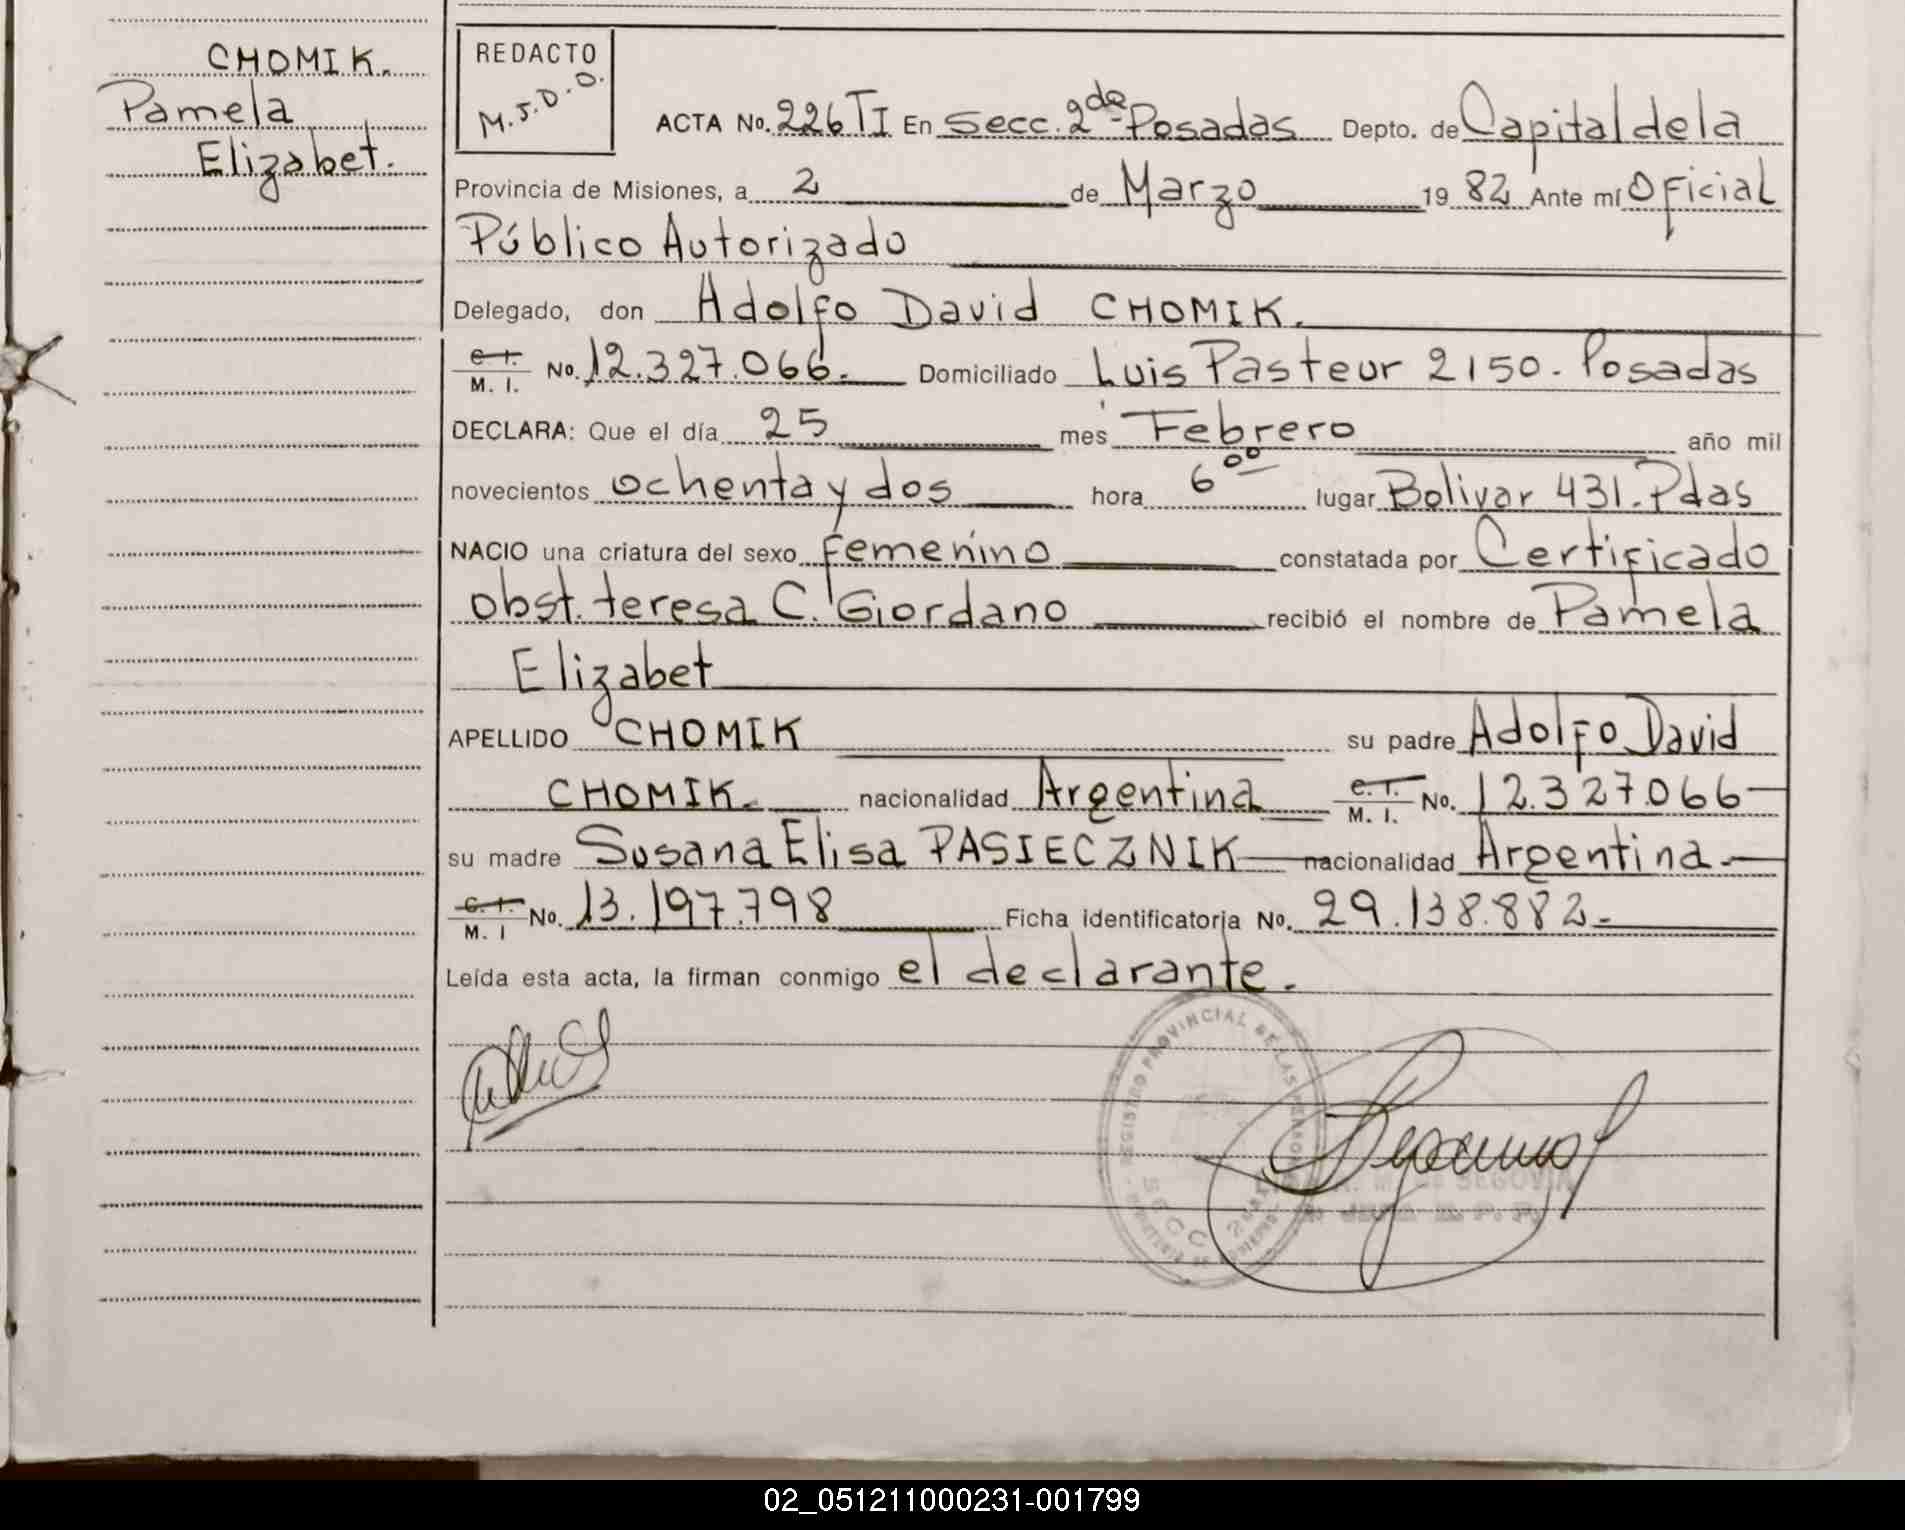 CHOMIK.
Pamela
Elizabet.
REDACTO
M.J.D.O.
ACTA No. 226 TI En Secc. 2da Posadas Depto. de Capital de la
Provincia de Misiones, a 2 de Marzo 19 82 Ante mí Oficial
Público Autorizado
Delegado, don Adolfo David CHOMIK.
C. I. M. I. No. 12.327.066. Domiciliado Luis Pasteur 2150. Posadas
DECLARA: Que el día 25 mes Febrero año mil
novecientos ochenta y dos hora 6 00 lugar Bolivar 431. Pdas
NACIO una criatura del sexo femenino constatada por Certificado
obst. teresa C. Giordano recibió el nombre de Pamela
Elizabet
APELLIDO CHOMIK su padre Adolfo David
CHOMIK. nacionalidad Argentina C. I. M. I. No. 12.327.066
su madre Susana Elisa PASIECZNIK nacionalidad Argentina.
C. I. M. I No. 13.197.798 Ficha identificatoria No. 29.138.882.
Leída esta acta, la firman conmigo el declarante.
REGISTRO PROVINCIAL DE LAS PERSONAS
SECC
M. DE SEGOVIA
JEFA R. P. P.
02_051211000231-001799